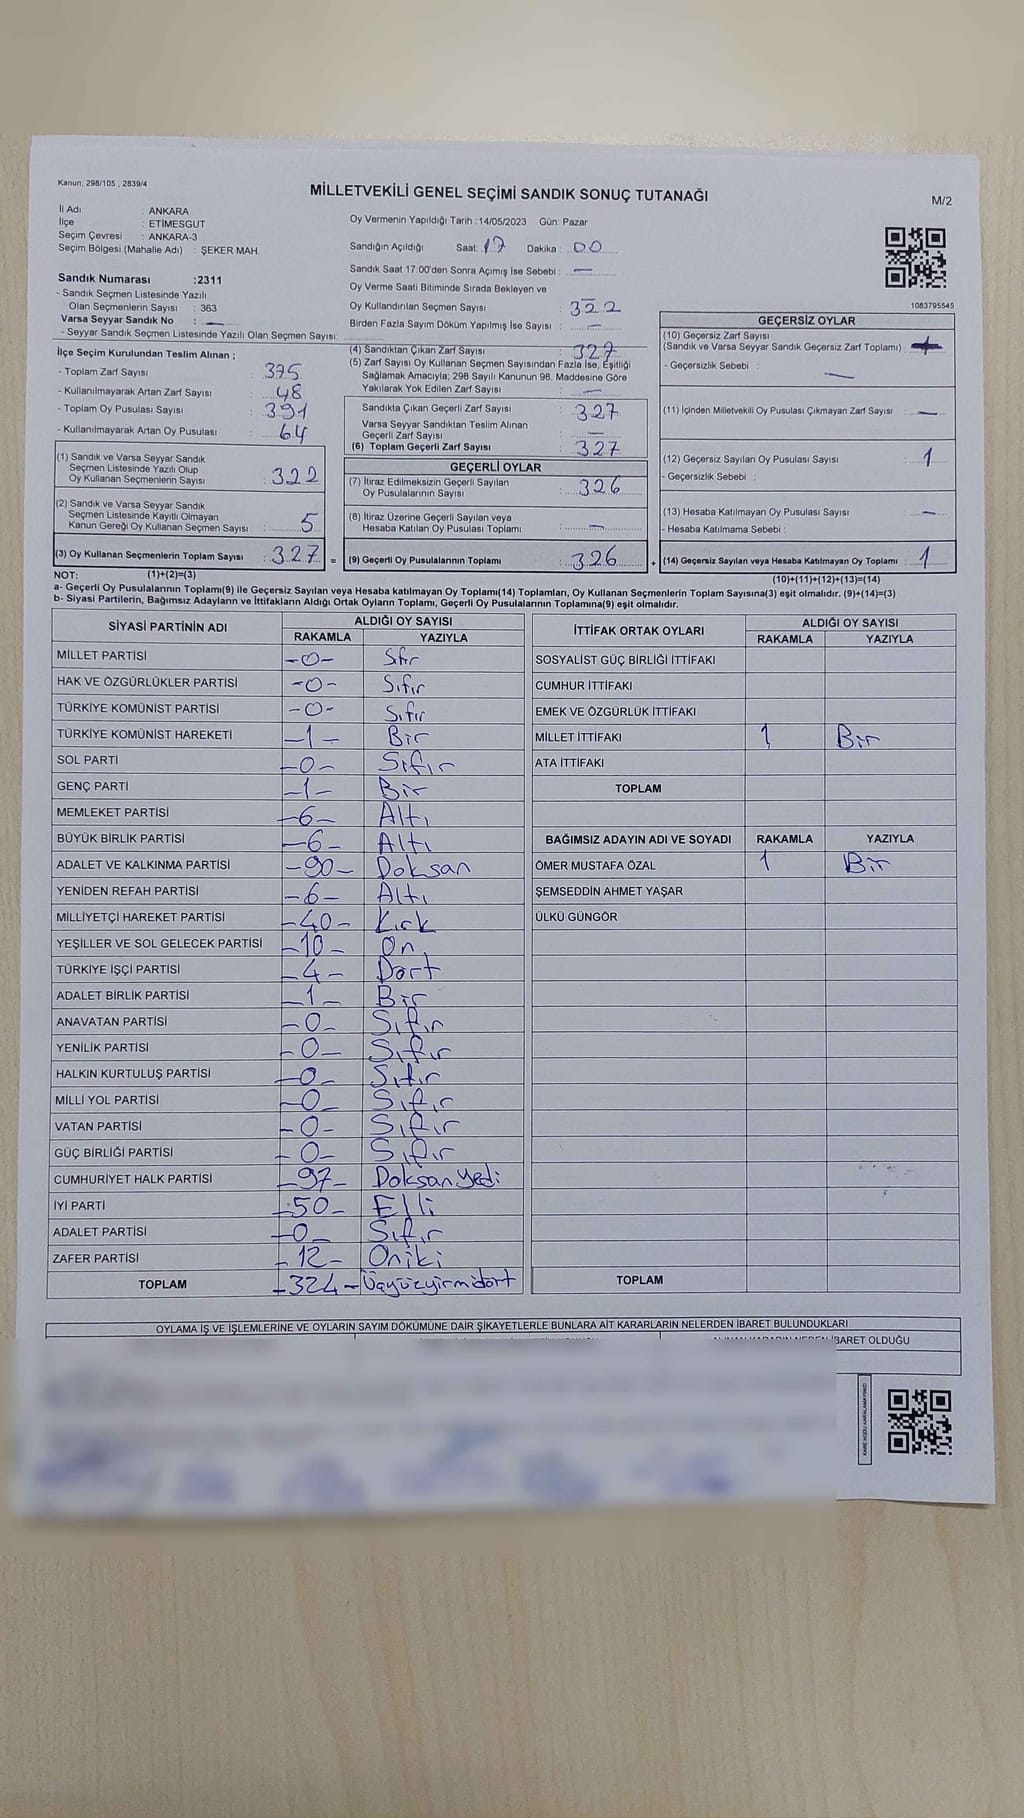 Kanun; 298/105 , 2839/4
MİLLETVEKİLİ GENEL SEÇİMİ SANDIK SONUÇ TUTANAĞI
M/2
İl Adı : ANKARA
İlçe : ETİMESGUT
Seçim Çevresi : ANKARA-3
Seçim Bölgesi (Mahalle Adı) : ŞEKER MAH.
Oy Vermenin Yapıldığı Tarih :14/05/2023 Gün: Pazar
Sandığın Açıldığı Saat: 17 Dakika : 00
Sandık Saat 17:00'den Sonra Açımış İse Sebebi : —
Oy Verme Saati Bitiminde Sırada Bekleyen ve
Oy Kullandırılan Seçmen Sayısı : 322
Birden Fazla Sayım Döküm Yapılmış İse Sayısı : —
1083795545
Sandık Numarası :2311
- Sandık Seçmen Listesinde Yazılı
Olan Seçmenlerin Sayısı : 363
Varsa Seyyar Sandık No : —
- Seyyar Sandık Seçmen Listesinde Yazılı Olan Seçmen Sayısı:
İlçe Seçim Kurulundan Teslim Alınan ;
- Toplam Zarf Sayısı : 375
- Kullanılmayarak Artan Zarf Sayısı : 48
- Toplam Oy Pusulası Sayısı : 391
- Kullanılmayarak Artan Oy Pusulası : 64
(1) Sandık ve Varsa Seyyar Sandık
Seçmen Listesinde Yazılı Olup
Oy Kullanan Seçmenlerin Sayısı : 322
(2) Sandık ve Varsa Seyyar Sandık
Seçmen Listesinde Kayıtlı Olmayan
Kanun Gereği Oy Kullanan Seçmen Sayısı : 5
(3) Oy Kullanan Seçmenlerin Toplam Sayısı : 327 =
(4) Sandıktan Çıkan Zarf Sayısı : 327
(5) Zarf Sayısı Oy Kullanan Seçmen Sayısından Fazla İse, Eşitliği
Sağlamak Amacıyla; 298 Sayılı Kanunun 98. Maddesine Göre
Yakılarak Yok Edilen Zarf Sayısı : —
Sandıkta Çıkan Geçerli Zarf Sayısı : 327
Varsa Seyyar Sandıktan Teslim Alınan
Geçerli Zarf Sayısı : —
(6) Toplam Geçerli Zarf Sayısı : 327
GEÇERLİ OYLAR
(7) İtiraz Edilmeksizin Geçerli Sayılan
Oy Pusulalarının Sayısı : 326
(8) İtiraz Üzerine Geçerli Sayılan veya
Hesaba Katılan Oy Pusulası Toplamı : —
(9) Geçerli Oy Pusulalarının Toplamı : 326 +
GEÇERSİZ OYLAR
(10) Geçersiz Zarf Sayısı
(Sandık ve Varsa Seyyar Sandık Geçersiz Zarf Toplamı) :
- Geçersizlik Sebebi : —
(11) İçinden Milletvekili Oy Pusulası Çıkmayan Zarf Sayısı : —
(12) Geçersiz Sayılan Oy Pusulası Sayısı : 1
- Geçersizlik Sebebi :
(13) Hesaba Katılmayan Oy Pusulası Sayısı : —
- Hesaba Katılmama Sebebi :
(14) Geçersiz Sayılan veya Hesaba Katılmayan Oy Toplamı : 1
NOT: (1)+(2)=(3) (10)+(11)+(12)+(13)=(14)
a- Geçerli Oy Pusulalarının Toplamı(9) ile Geçersiz Sayılan veya Hesaba katılmayan Oy Toplamı(14) Toplamları, Oy Kullanan Seçmenlerin Toplam Sayısına(3) eşit olmalıdır. (9)+(14)=(3)
b- Siyasi Partilerin, Bağımsız Adayların ve İttifakların Aldığı Ortak Oyların Toplamı, Geçerli Oy Pusulalarının Toplamına(9) eşit olmalıdır.
SİYASİ PARTİNİN ADI ALDIĞI OY SAYISI
RAKAMLA YAZIYLA
MİLLET PARTİSİ -0- Sfır
HAK VE ÖZGÜRLÜKLER PARTİSİ -0- Sıfır
TÜRKİYE KOMÜNİST PARTİSİ -0- Sıfır
TÜRKİYE KOMÜNİST HAREKETİ -1- Bir
SOL PARTİ -0- Sıfır
GENÇ PARTİ -1- Bir
MEMLEKET PARTİSİ -6- Altı
BÜYÜK BİRLİK PARTİSİ -6- Altı
ADALET VE KALKINMA PARTİSİ -90- Doksan
YENİDEN REFAH PARTİSİ -6- Altı
MİLLİYETÇİ HAREKET PARTİSİ -40- Kırk
YEŞİLLER VE SOL GELECEK PARTİSİ -10- On
TÜRKİYE İŞÇİ PARTİSİ -4- Dört
ADALET BİRLİK PARTİSİ -1- Bir
ANAVATAN PARTİSİ -0- Sıfır
YENİLİK PARTİSİ -0- Sıfır
HALKIN KURTULUŞ PARTİSİ -0- Sıfır
MİLLİ YOL PARTİSİ -0- Sıfır
VATAN PARTİSİ -0- Sıfır
GÜÇ BİRLİĞİ PARTİSİ -0- Sıfır
CUMHURİYET HALK PARTİSİ -97- Doksanyedi
İYİ PARTİ -50- Elli
ADALET PARTİSİ -0- Sıfır
ZAFER PARTİSİ -12- Oniki
TOPLAM -324- Üçyüzyirmidört
İTTİFAK ORTAK OYLARI ALDIĞI OY SAYISI
RAKAMLA YAZIYLA
SOSYALİST GÜÇ BİRLİĞİ İTTİFAKI
CUMHUR İTTİFAKI
EMEK VE ÖZGÜRLÜK İTTİFAKI
MİLLET İTTİFAKI 1 Bir
ATA İTTİFAKI
TOPLAM
BAĞIMSIZ ADAYIN ADI VE SOYADI RAKAMLA YAZIYLA
ÖMER MUSTAFA ÖZAL 1 Bir
ŞEMSEDDİN AHMET YAŞAR
ÜLKÜ GÜNGÖR
TOPLAM
OYLAMA İŞ VE İŞLEMLERİNE VE OYLARIN SAYIM DÖKÜMÜNE DAİR ŞİKAYETLERLE BUNLARA AİT KARARLARIN NELERDEN İBARET BULUNDUKLARI
İBARET OLDUĞU
KARE KODU KARALAMAYINIZ!